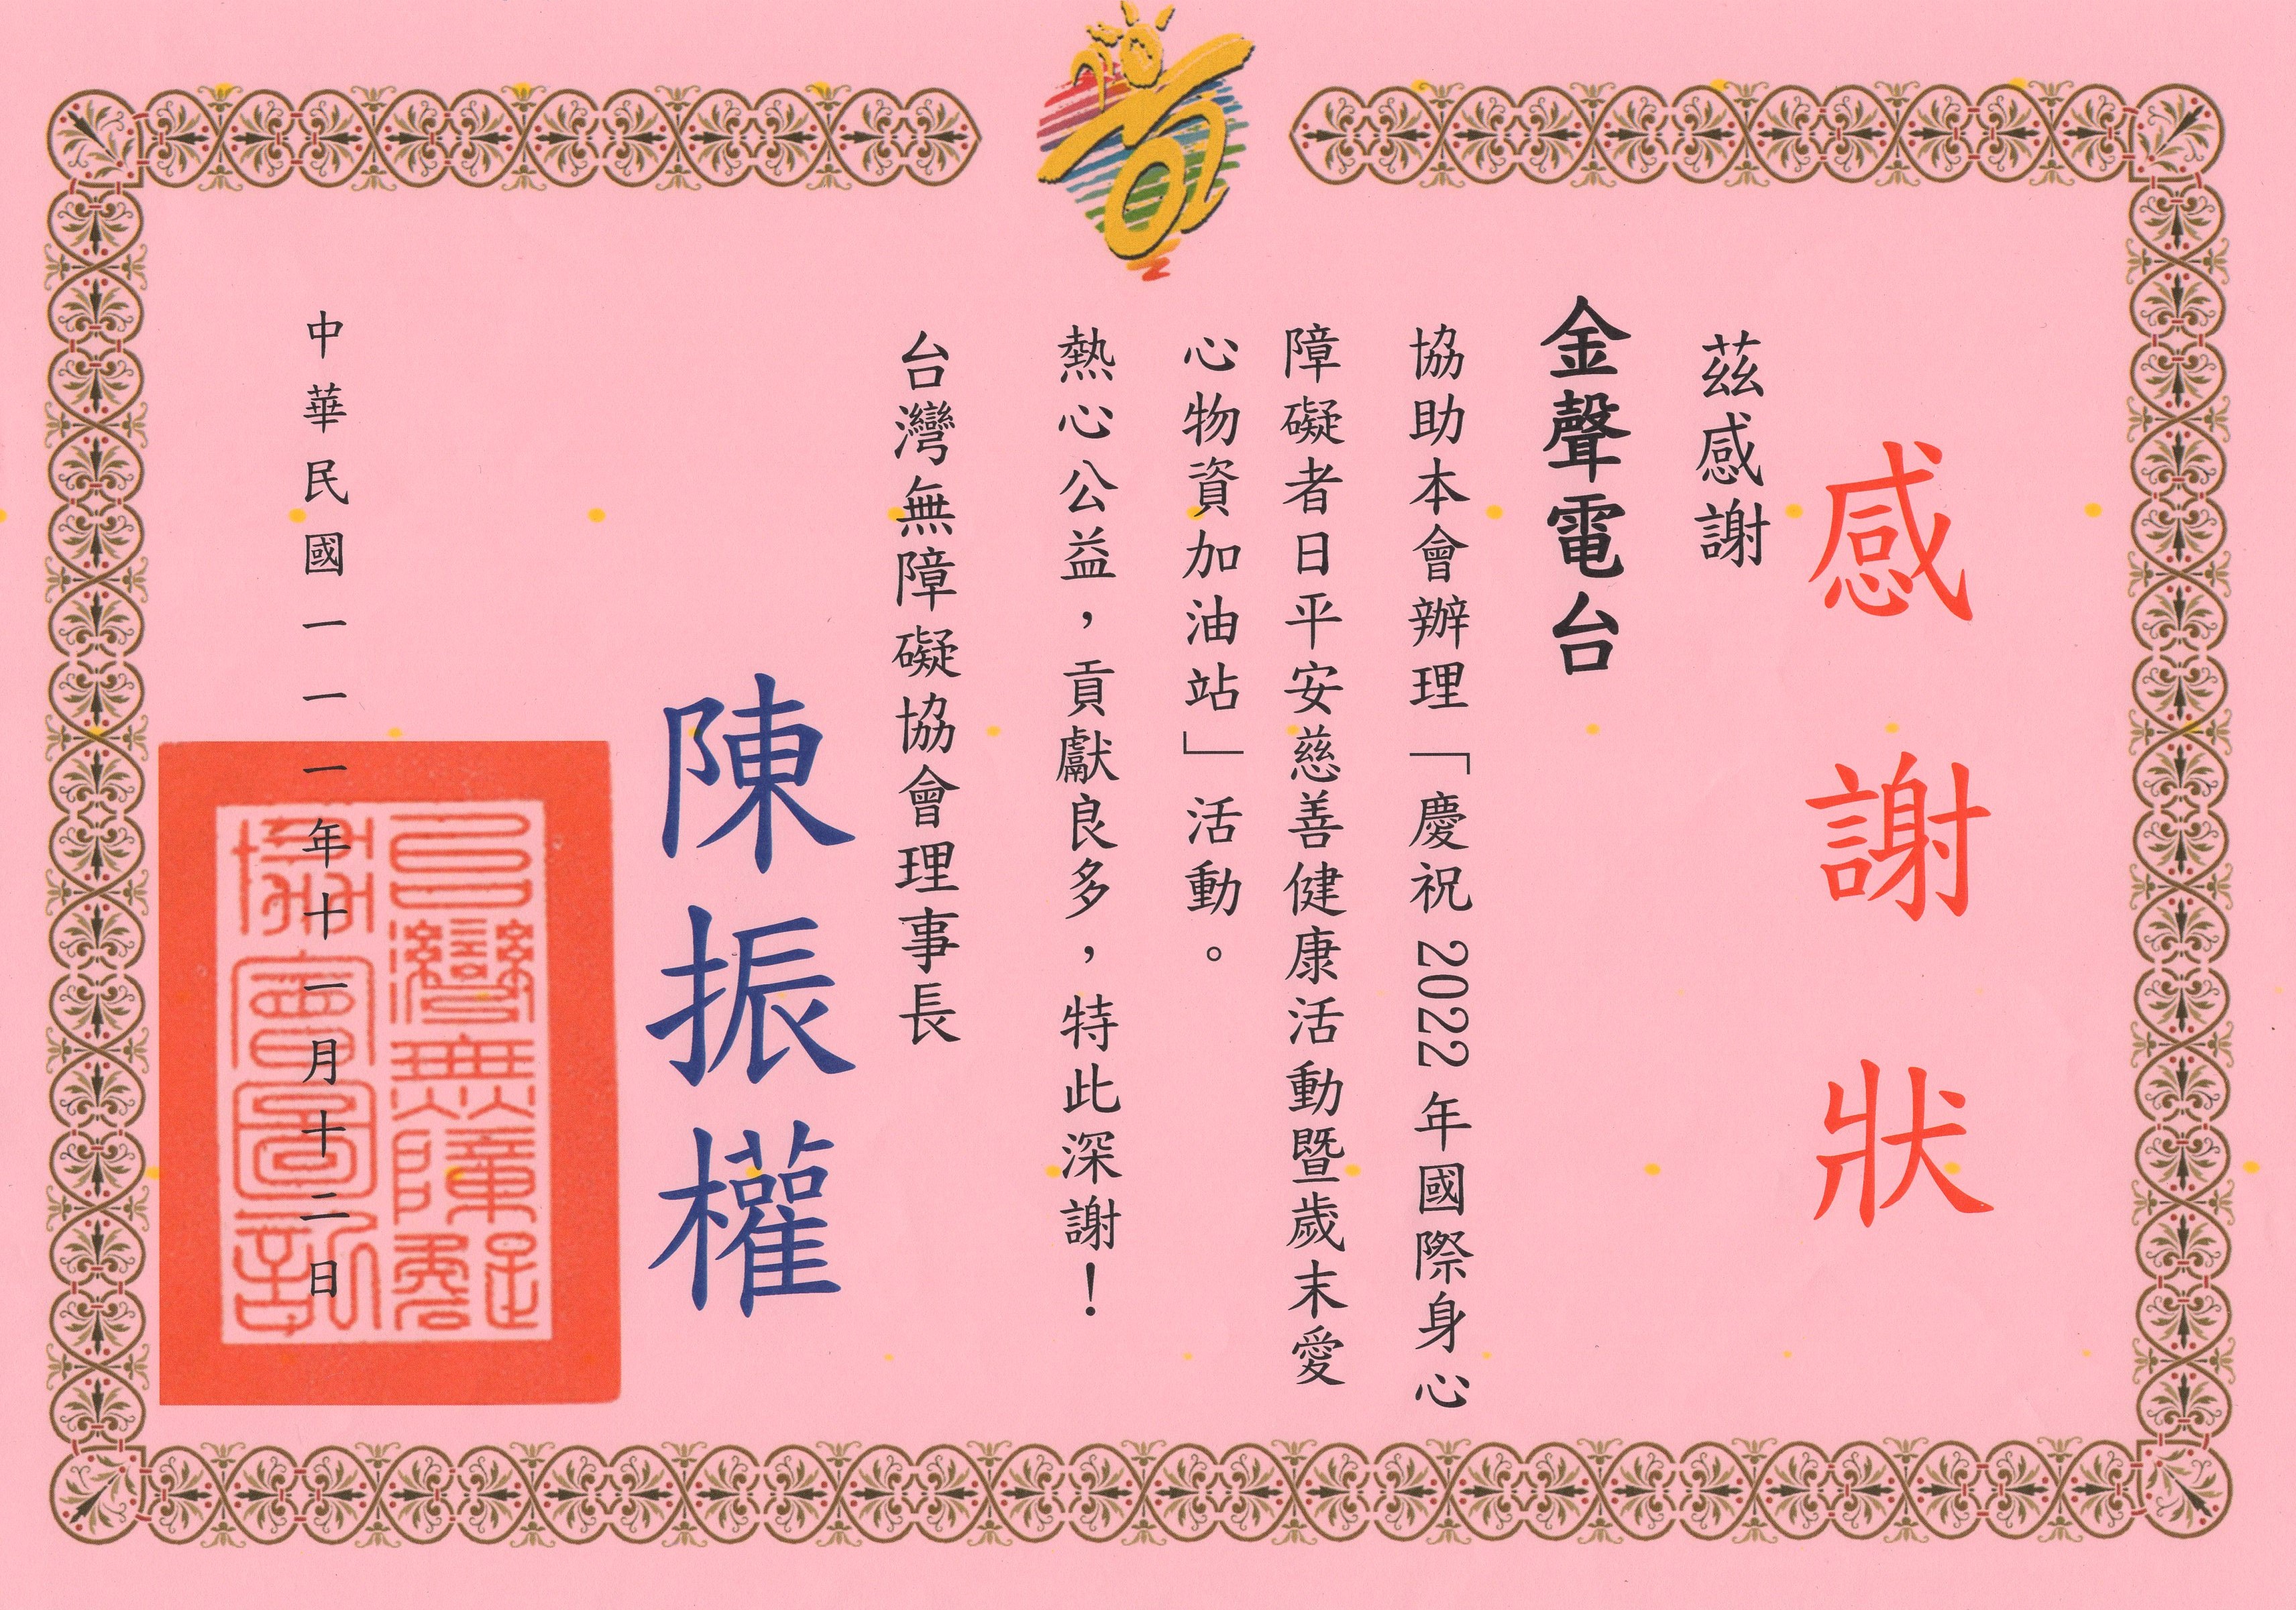 感謝狀
茲感謝
金聲電台
協助本會辦理「慶祝2022年國際身心
障礙者日平安慈善健康活動暨歲末愛
心物資加油站」活動。
熱心公益，貢獻良多，特此深謝！
台灣無障礙協會理事長
陳振權
中華民國一一一年十一月十二日
台灣無障礙
協會圖記